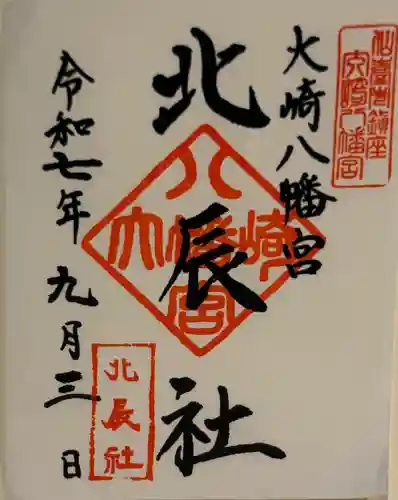 仙臺市鎮座
大崎八幡宮
大崎八幡宮
北辰社
八幡宮
大崎
北辰社
令和七年九月三日